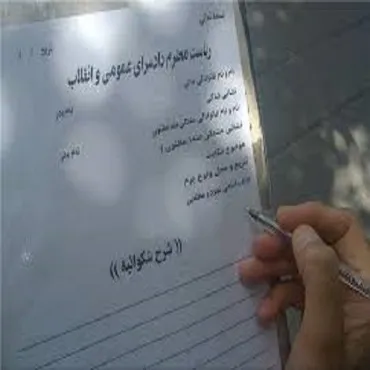 بسمه تعالی
تاریخ / /
ریاست محترم دادسرای عمومی و انقلاب
نام و نام خانوادگی شاکی نام پدر
نشانی شاکی
نام و نام خانوادگی نام پدر
نشانی
موضوع شکایت
تاریخ و محل وقوع جرم
اسامی شهود و مطلعین
(( شرح شکوائیه ))